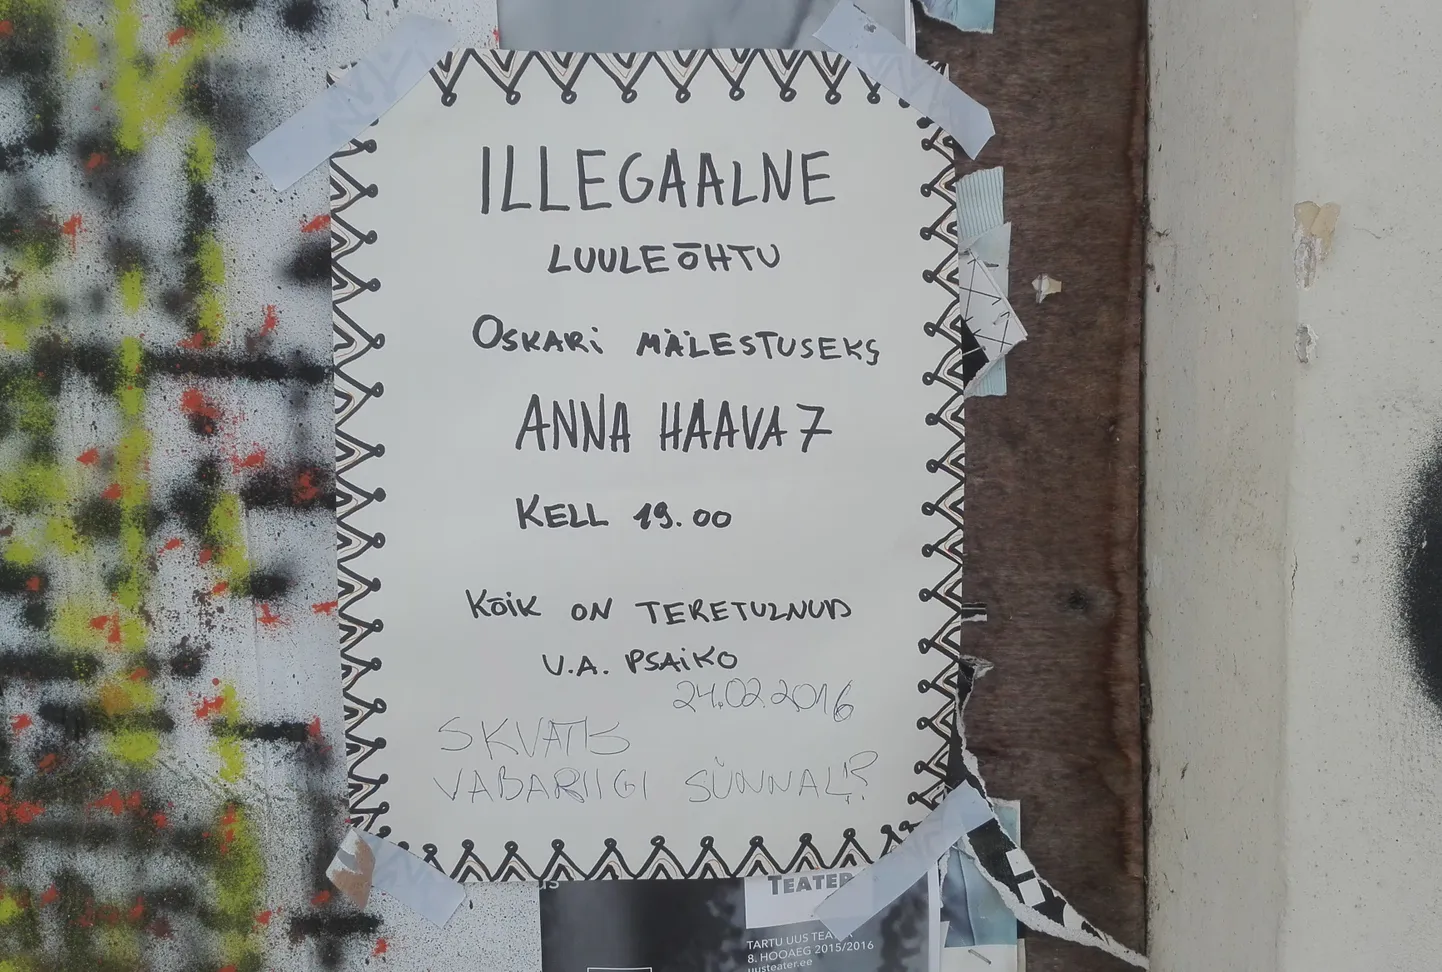 ILLEGAALNE
LUULEÕHTU
OSKARI MÄLESTUSEKS
ANNA HAAVA 7
KELL 19.00
KÕIK ON TERETULNUD
V.A. PSAIKO
24.02.2016
SKVATIS
VABARIIGI SÜNNAL!?
TEATER
TARTU UUS TEATER
8. HOOAEG 2015/2016
uusteater.ee